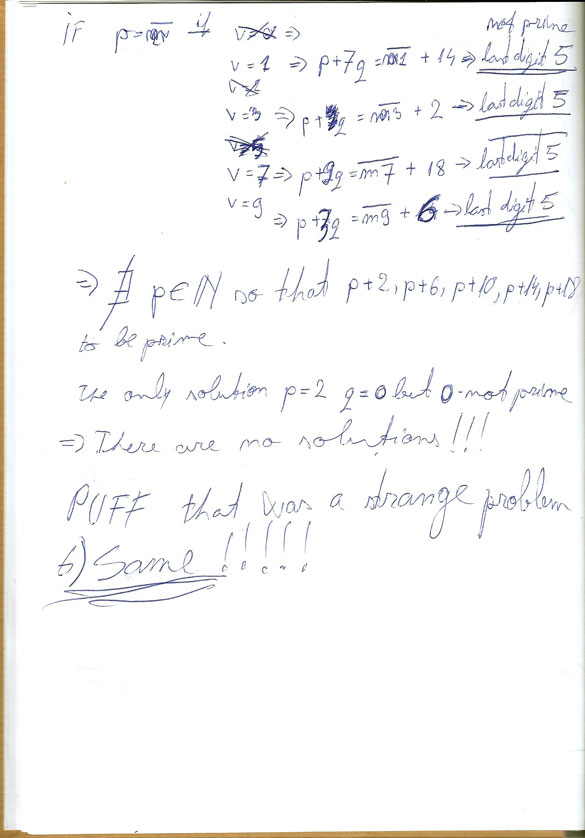 not prime
if p = mv if
v=1 => p+7q = m1 + 14 => last digit 5
v=3 => p+q = m3 + 2 -> last digit 5
v=7 => p+9q = m7 + 18 -> last digit 5
v=9 => p+3q = m9 + 6 -> last digit 5
=> ∄ p∈N so that p+2, p+6, p+10, p+14, p+18
to be prime.
The only solution p=2 q=0 but 0-not prime
=> There are no solutions!!!
PUFF that was a strange problem
b) Same!!!!!